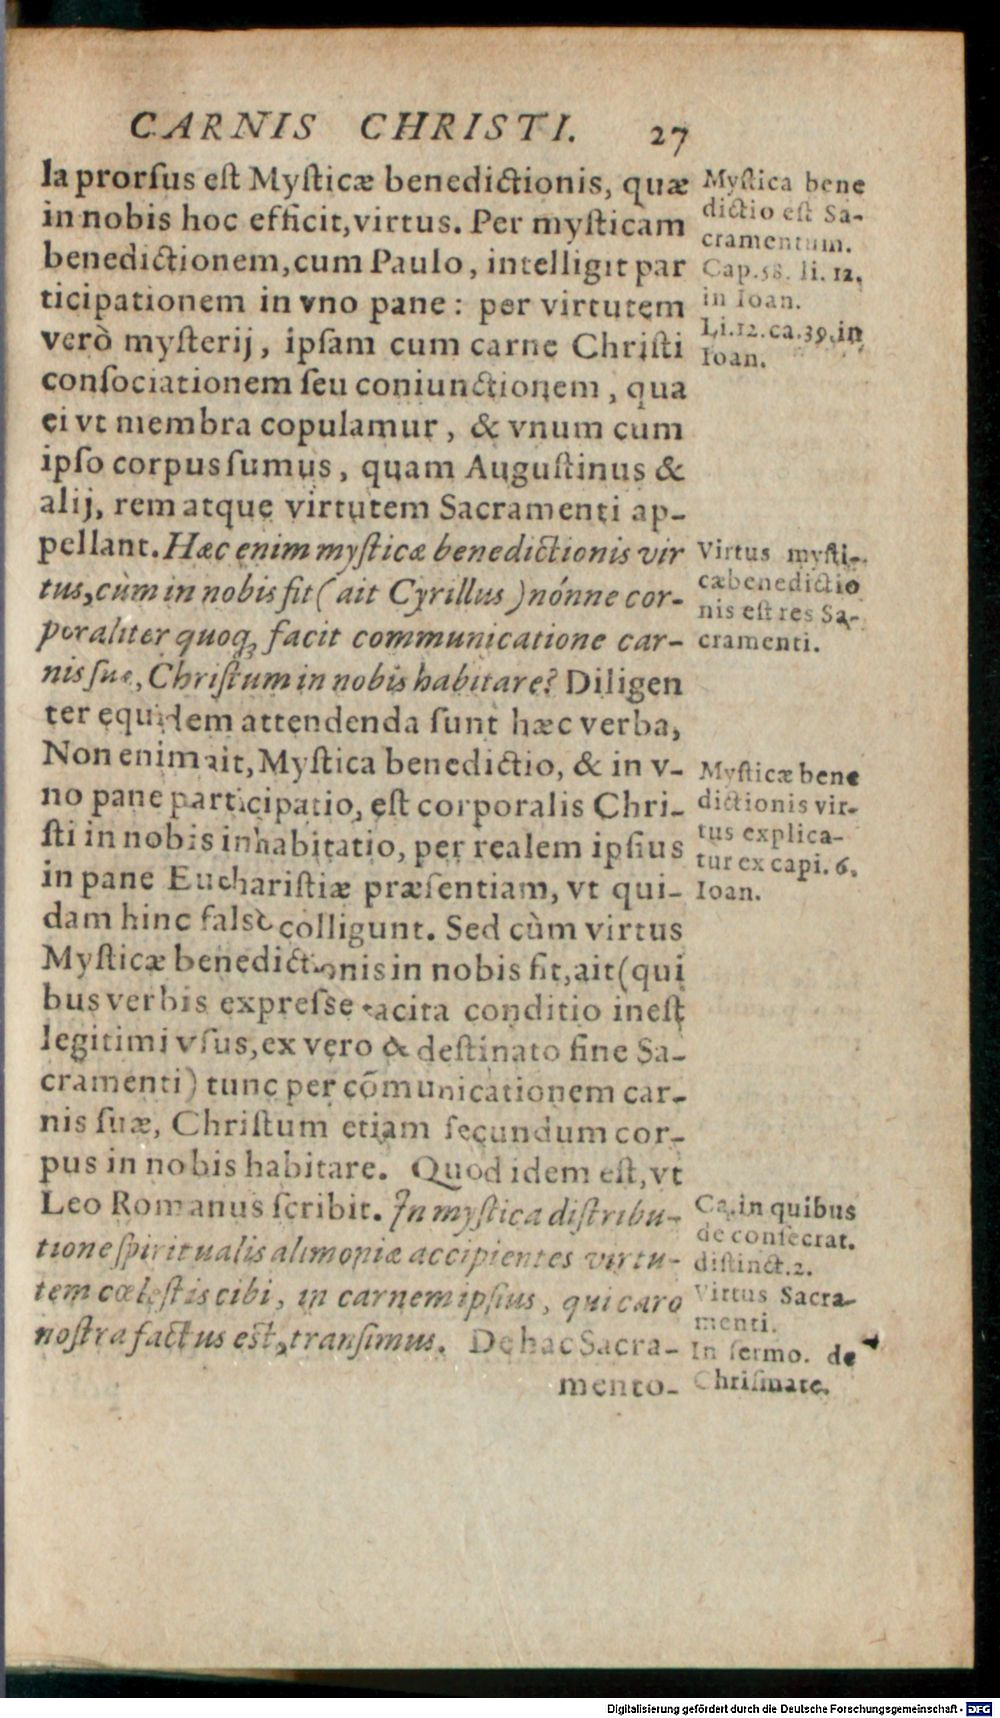 CARNIS CHRISTI. 27
la prorsus est Mysticæ benedictionis, quæ
in nobis hoc efficit, virtus. Per mysticam
benedictionem, cum Paulo, intelligit par
ticipationem in vno pane: per virtutem
verò mysterij, ipsam cum carne Christi
consociationem seu coniunctionem, qua
ei vt membra copulamur, & vnum cum
ipso corpus sumus, quam Augustinus &
alij, rem atque virtutem Sacramenti ap-
pellant. Hæc enim mysticæ benedictionis vir
tus, cùm in nobis fit (ait Cyrillus) nónne cor-
poraliter quoq; facit communicatione car-
nis suæ, Christum in nobis habitare? Diligen
ter equidem attendenda sunt hæc verba,
Non enim ait, Mystica benedictio, & in v-
no pane participatio, est corporalis Chri-
sti in nobis inhabitatio, per realem ipsius
in pane Eucharistiæ præsentiam, vt qui-
dam hinc falsò colligunt. Sed cùm virtus
Mysticæ benedictionis in nobis fit, ait (qui
bus verbis expresse tacita conditio inest
legitimi vsus, ex vero & destinato fine Sa-
cramenti) tunc per cõmunicationem car-
nis suæ, Christum etiam secundum cor-
pus in nobis habitare. Quod idem est, vt
Leo Romanus scribit. In mystica distribu-
tione spiritualis alimoniæ accipientes virtu-
tem cœlestis cibi, in carnem ipsius, qui caro
nostra factus est, transimus. De hac Sacra-
mento-
Mystica bene
dictio est Sa-
cramentum.
Cap.58. li. 12.
in Ioan.
Li.12.ca.39.in
Ioan.
Virtus mysti-
cæ benedictio
nis est res Sa-
cramenti.
Mysticæ bene
dictionis vir-
tus explica-
tur ex capi. 6.
Ioan.
Ca. in quibus
de consecrat.
distinct.2.
Virtus Sacra-
menti.
In sermo. de
Chrismate.
Digitalisierung gefördert durch die Deutsche Forschungsgemeinschaft - DFG